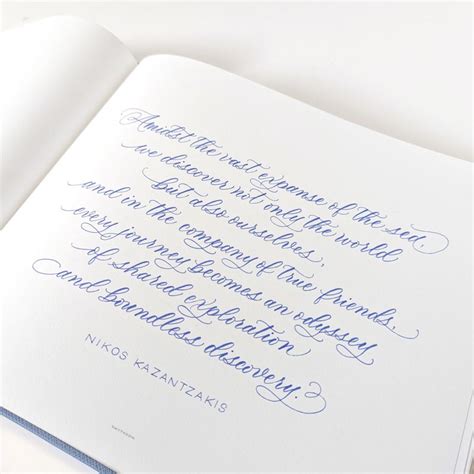 Amidst the vast expanse of the sea,
we discover not only the world
but also ourselves,
and in the company of true friends,
every journey becomes an odyssey
of shared exploration
and boundless discovery.
NIKOS KAZANTZAKIS